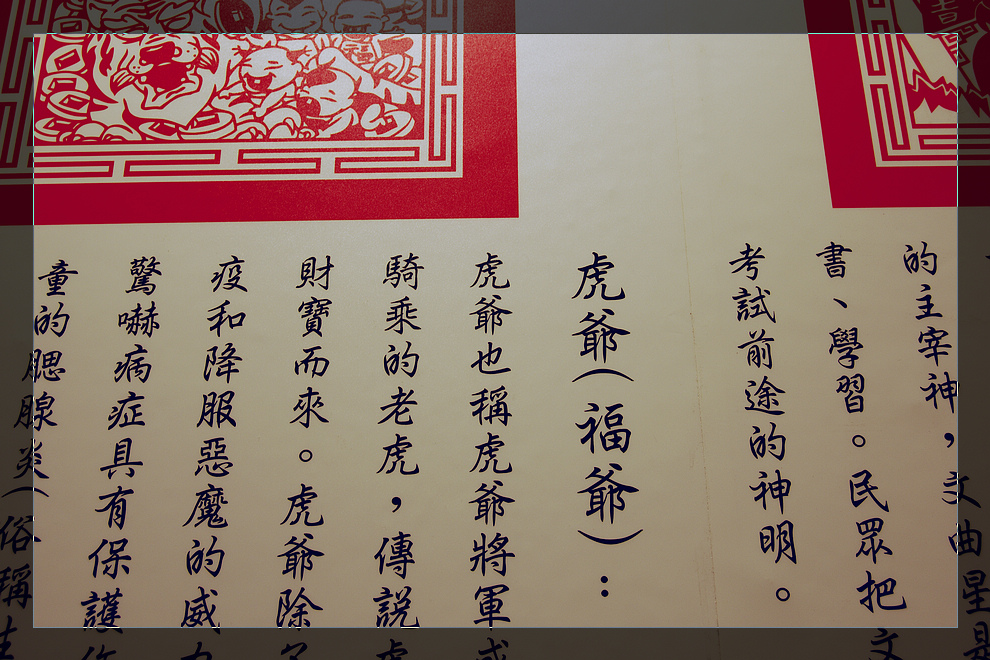 的主宰神，文曲星是
書、學習。民眾把文
考試前途的神明。
虎爺（福爺）：
虎爺也稱虎爺將軍或
騎乘的老虎，傳說虎
財寶而來。虎爺除了
疫和降服惡魔的威力
驚嚇病症具有保護作
童的腮腺炎（俗稱生